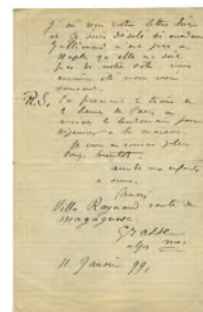 J'ai reçu votre lettre hier
et je suis désolé si madame
Gallimard n'est pas à
Naples qu'elle ne soit
pas de notre côté nous
aurions été nous
R.S. En prenant le train de
2 heures de Paris on
arrive le lendemain pour
déjeuner à la maison.
Je vous
bientôt
amitiés aux enfants
à vous.
Renoir
Villa Raynaud route de
Magagnosc.
Grasse
alpes mes
11. Janvier 99,